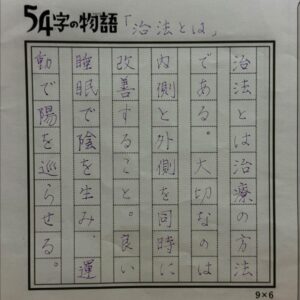 54字の物語「治法とは」
治法とは治療の方法
である。大切なのは
内側と外側を同時に
改善すること。良い
睡眠で陰を生み、運
動で陽を巡らせる。
9×6